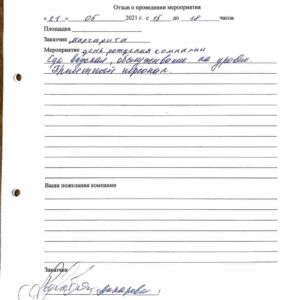 Отзыв о проведении мероприятия
« 21 » 05 2021 г. с 15 до 18 часов
Площадка
Заказчик Маргарита
Мероприятие день рождения компании
Еда вкусная, обслуживание на уровне.
Приветливый персонал.
Ваши пожелания компании
Заказчик